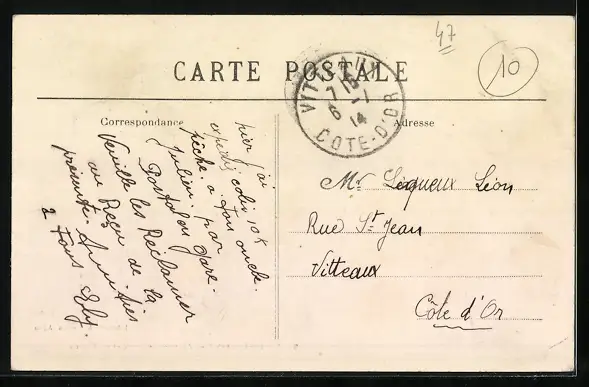 47
10
CARTE POSTALE
VITTEAUX
7 1
6 14
COTE-D'OR
Correspondance
Adresse
hier j'ai
expédié colis 10 K
pêche. a ton oncle.
Julien. par
Pontalou gare.
Veuille les Réclamer
au Reçu de la
présente. Amitiés
a tous. Ely.
Mr. Lequeux Léon
Rue St Jean
Vitteaux
Côte d'Or